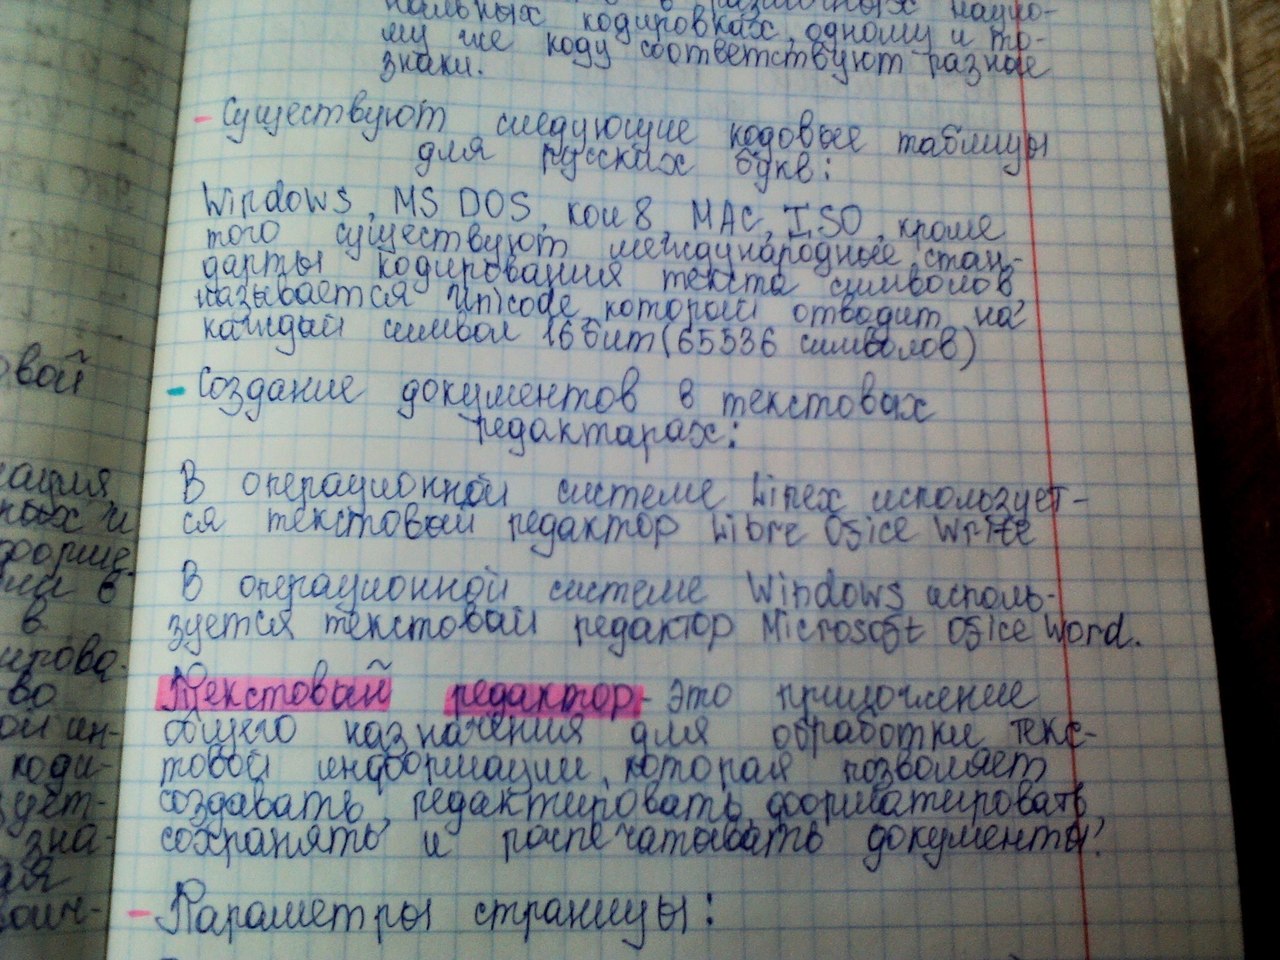 нальных кодировках одному и то-
му же коду соответствуют разные
знаки.
- Существуют следующие кодовые таблицы
для русских букв:
Windows, MS DOS, кои 8, MAC, ISO, кроме
того существуют международные стан-
дарты кодирования текста символов
называется Unicode, который отводит на
каждый символ 16 бит (65536 символов)
- Создание документов в текстовых
редактарах:
В операционной системе Linex использует-
ся текстовый редактор Libre Ofice Write
В операционной системе Windows исполь-
зуется текстовый редактор Microsoft Ofice Word.
Текстовый редактор - это приложение
общего назначения для обработки текс-
товой информации, которая позволяет
создавать, редактировать, форматировать,
сохранять и распечатывать документы.
- Параметры страницы:
овой
ация
ных и
в
во
коди-
зует-
зна-